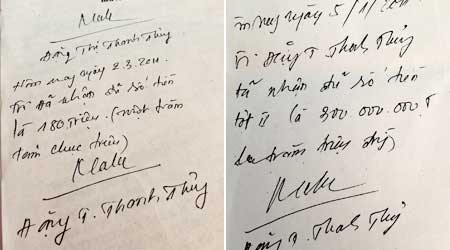 Đặng Thị Thanh Thủy
Hôm nay ngày 2.3.2011.
Tôi đã nhận đủ số tiền
là 180 triệu. (một trăm
tám chục triệu)
Đặng T. Thanh Thủy
nay ngày 5/1/20
Tôi Đặng T. Thanh Thủy
đã nhận đủ số tiền
đợt II là 300.000.000đ
ba trăm triệu đồng)
Đặng T. Thanh Thủy